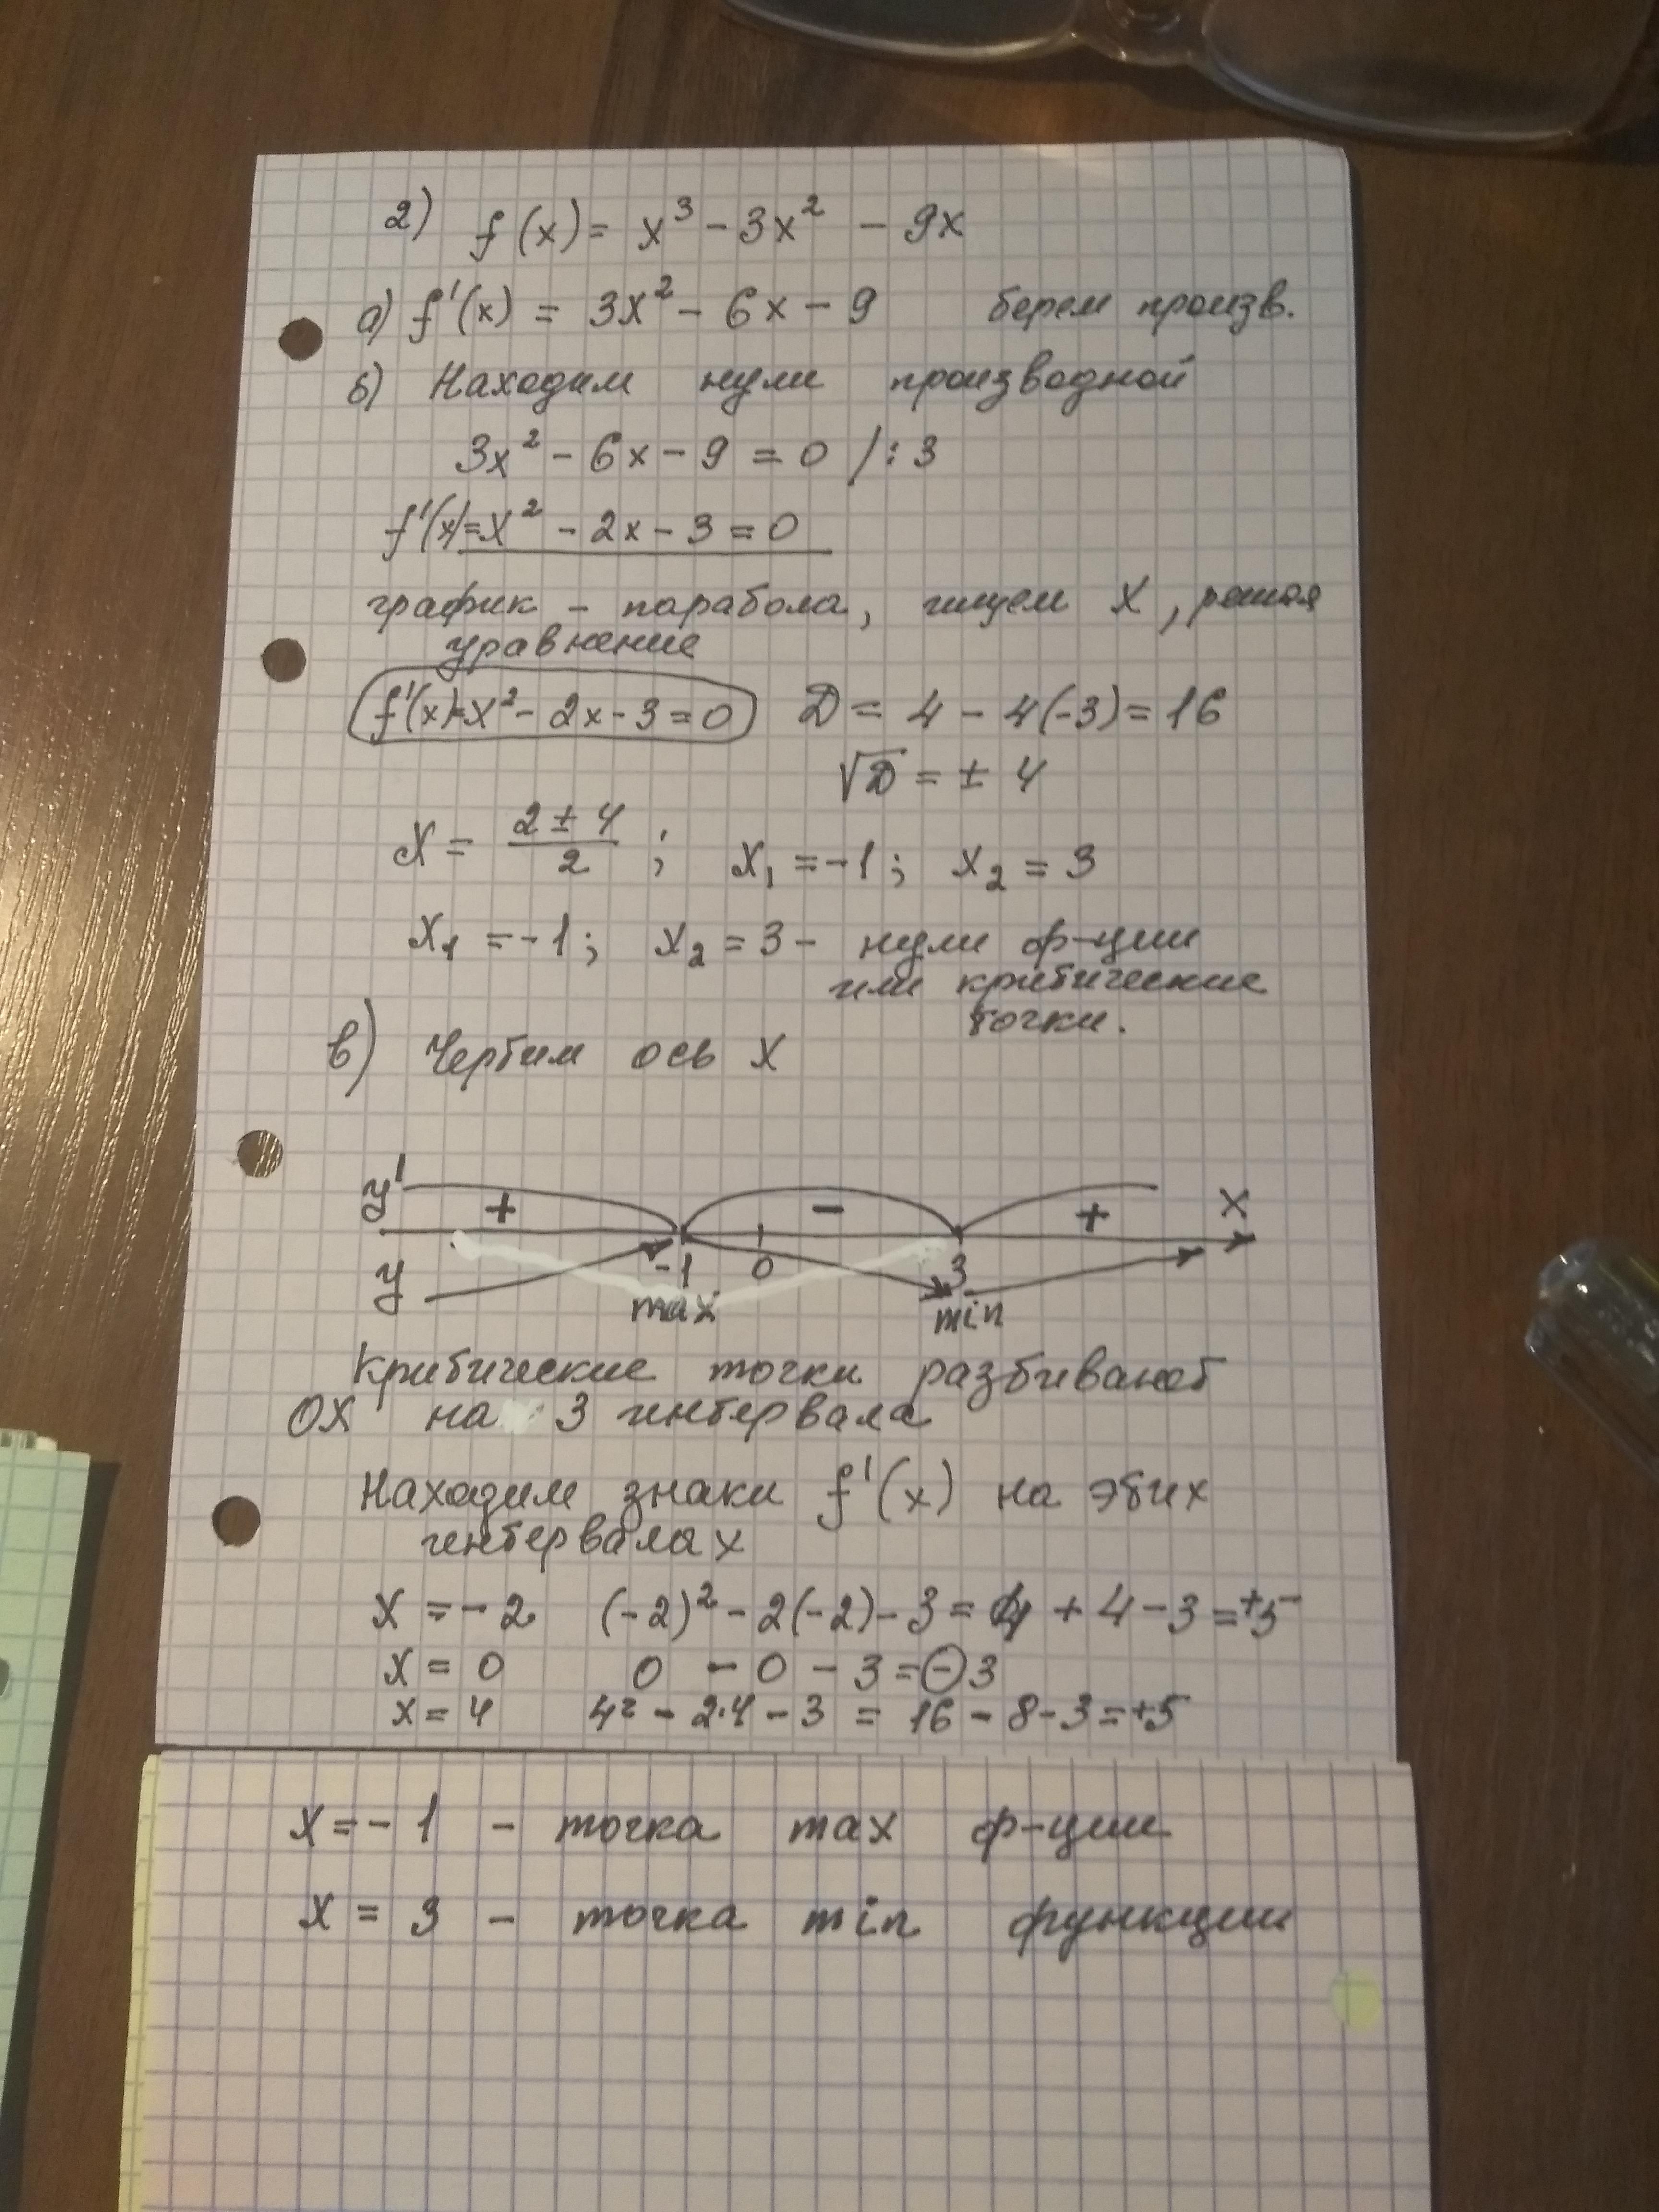 2) f(x) = x³ - 3x² - 9x
а) f'(x) = 3x² - 6x - 9 берем произв.
б) Находим нули производной
3x² - 6x - 9 = 0 /:3
f'(x)=x² - 2x - 3 = 0
график - парабола, ищем X, решая
уравнение
f'(x)=x² - 2x - 3 = 0 D = 4 - 4(-3) = 16
√D = ± 4
x = (2 ± 4)/2 ; x₁ = -1; x₂ = 3
x₁ = -1; x₂ = 3 - нули ф-ции
или критические
точки.
в) Чертим ось X
y' + - + x
y -1 0 3
max min
Критические точки разбивают
OX на 3 интервала
Находим знаки f'(x) на этих
интервалах
x = -2 (-2)² - 2(-2) - 3 = 4 + 4 - 3 = +5
x = 0 0 - 0 - 3 = -3
x = 4 4² - 2·4 - 3 = 16 - 8 - 3 = +5
x = -1 - точка max ф-ции
x = 3 - точка min функции